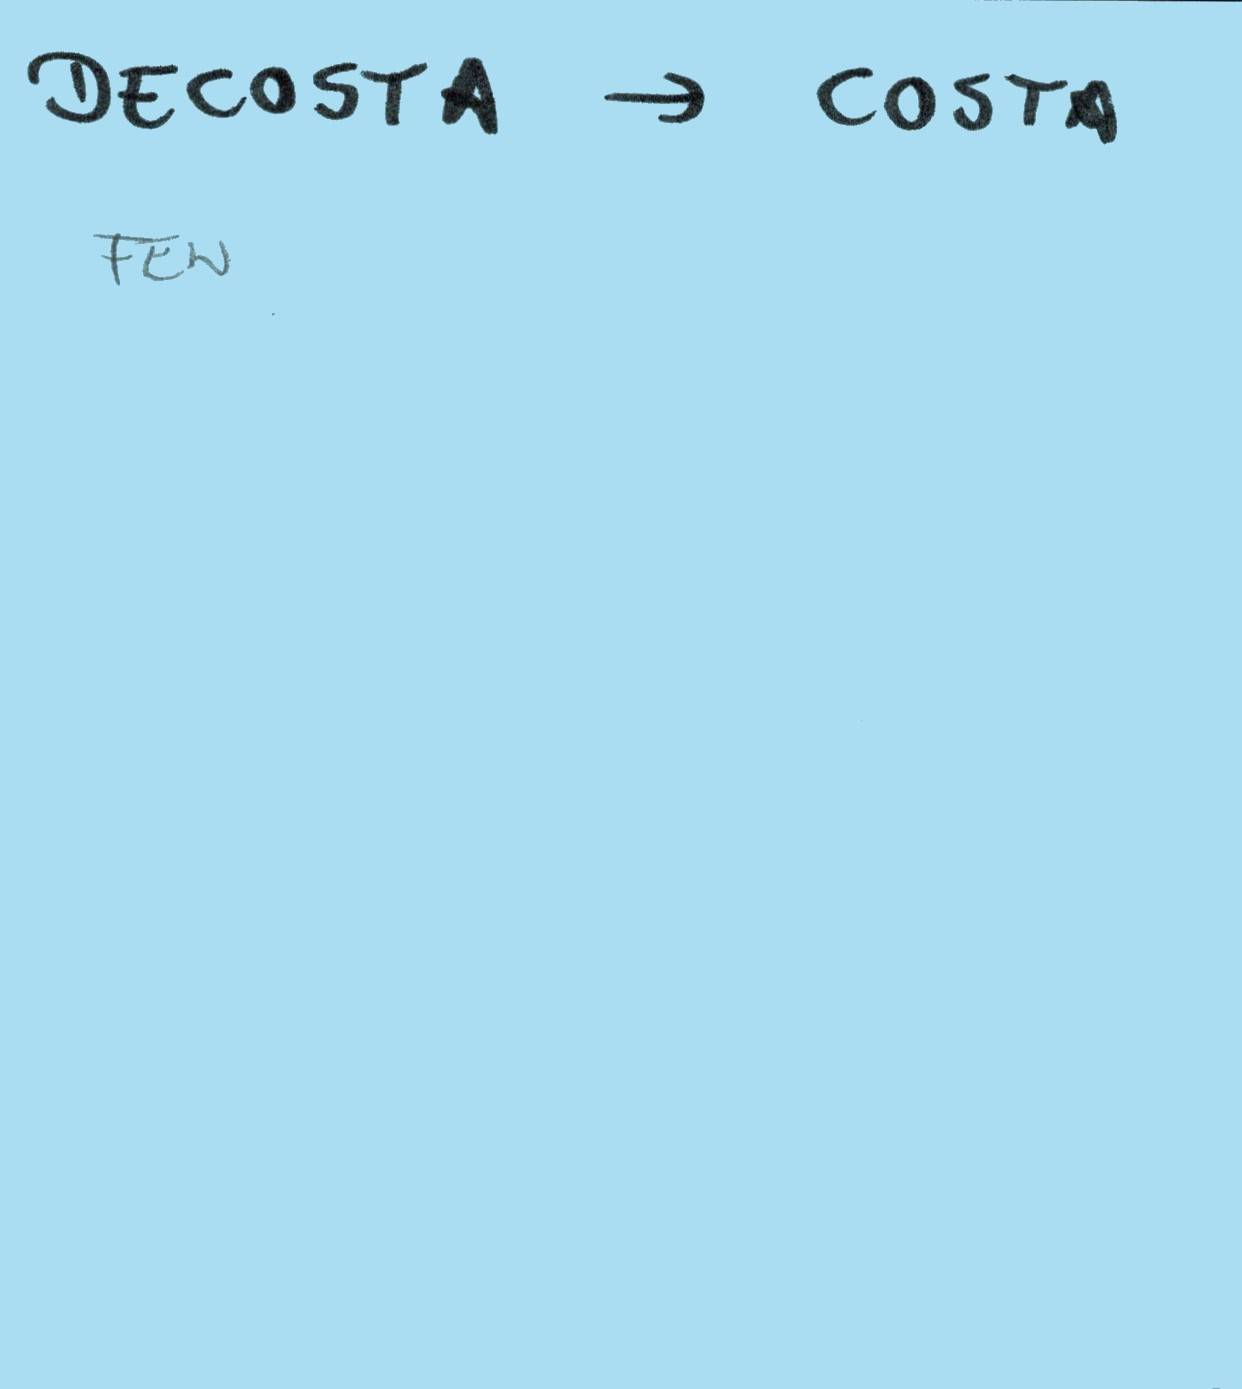 DECOSTA → COSTA
FEW